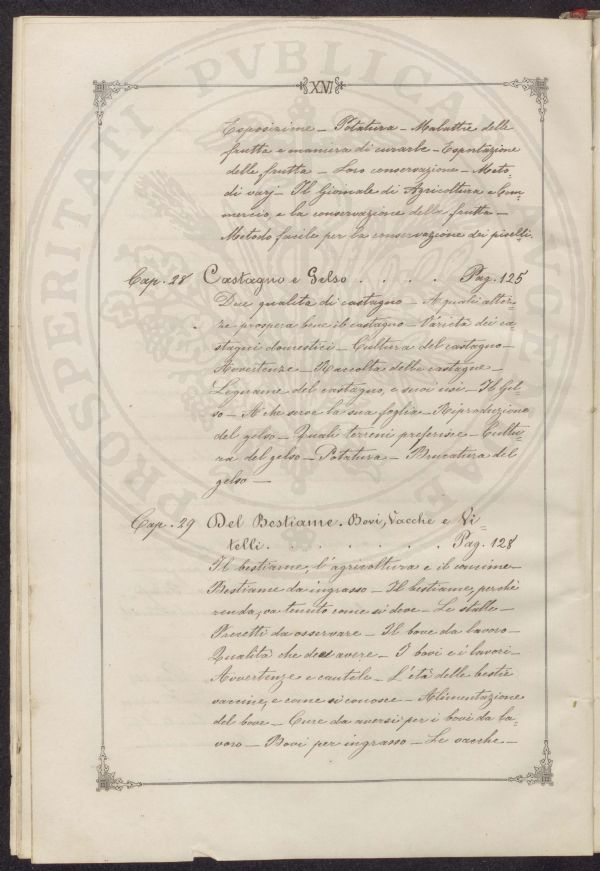 XVI
Esposizione – Potatura – Malattie delle
frutta e maniera di curarle – Esportazione
delle frutta – Loro conservazione – Meto-
di varj – Il Giornale di Agricoltura e Com-
mercio, e la conservazione della frutta –
Metodo facile per la conservazione dei piselli.
Cap. 28 Castagno e Gelso . . . . Pag. 125
Due qualità di castagno – A quali altez-
ze prospera bene il castagno – Varietà dei ca-
stagni domestici – Cultura del castagno –
Avvertenze – Raccolta delle castagne –
Legname del castagno, e suoi usi – Il Gel-
so – A che serve la sua foglia – Riproduzione
del gelso – Quali terreni preferisce – Cultu-
ra del gelso – Potatura – Brucatura del
gelso –
Cap. 29 Del Bestiame. Bovi, Vacche e Vi-
telli . . . . . . . . Pag. 128
Il bestiame, l'agricoltura e il concime
Bestiame da ingrasso – Il bestiame, perchè
renda, va tenuto come si deve – Le stalle –
Precetti da osservare – Il bove da lavoro –
Qualità che deve avere – I bovi e i lavori –
Avvertenze e cautele – L'età delle bestie
vaccine, e come si conosce – Alimentazione
del bove – Cure da aversi per i bovi da la-
voro – Bovi per ingrasso – Le vacche –
PROSPERITATI PVBLICAE